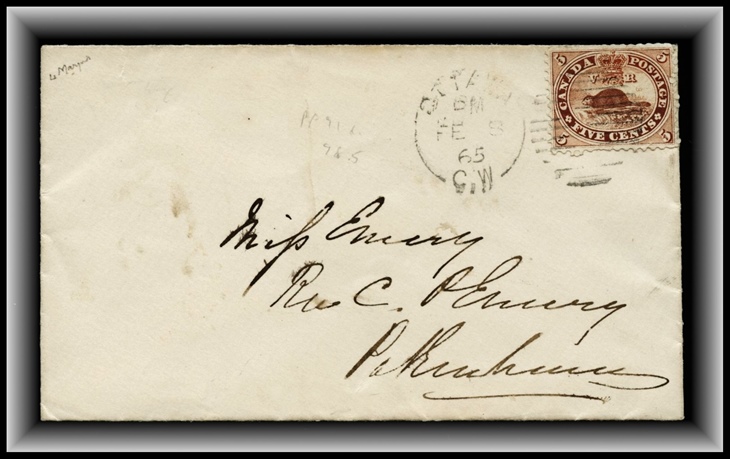 CANADA POSTAGE
V R
5 FIVE CENTS 5
OTTAWA
PM
FE 8
65
C.W
Miss Emery
Rev C. P Emery
Pakenham